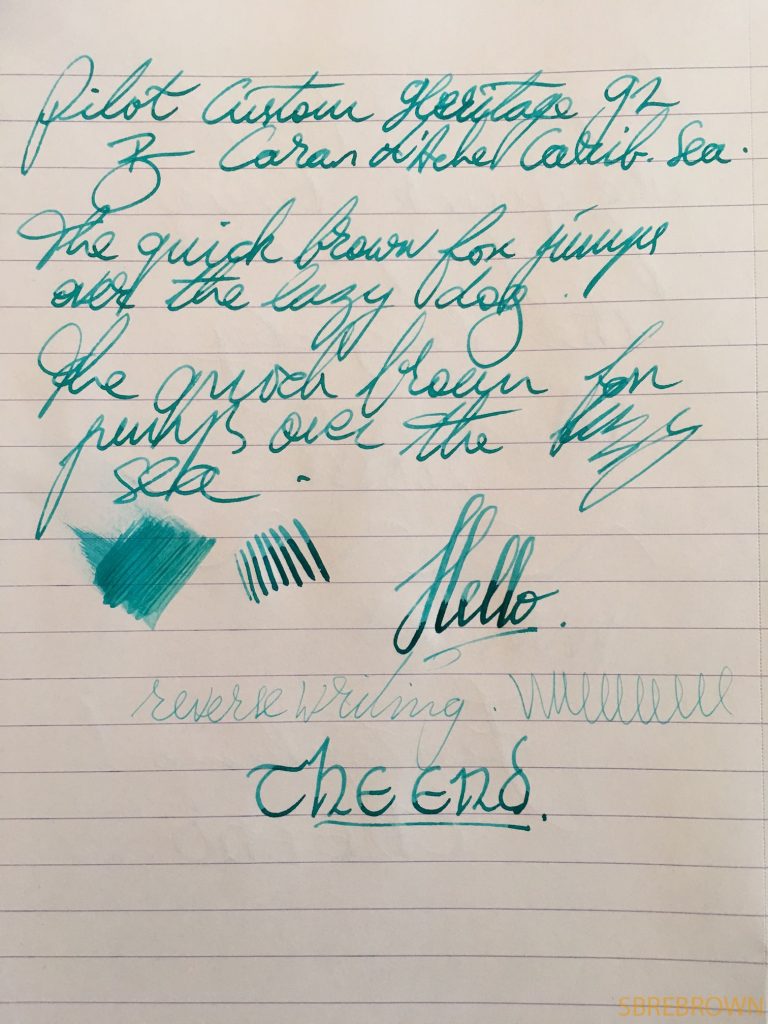 Pilot Custom Heritage 92
B Caran d'Ache Carib. Sea.
The quick brown fox jumps
over the lazy dog.
The quick brown fox
jumps over the lazy
sea.
Hello.
reverse writing.
The End.
SBREBROWN